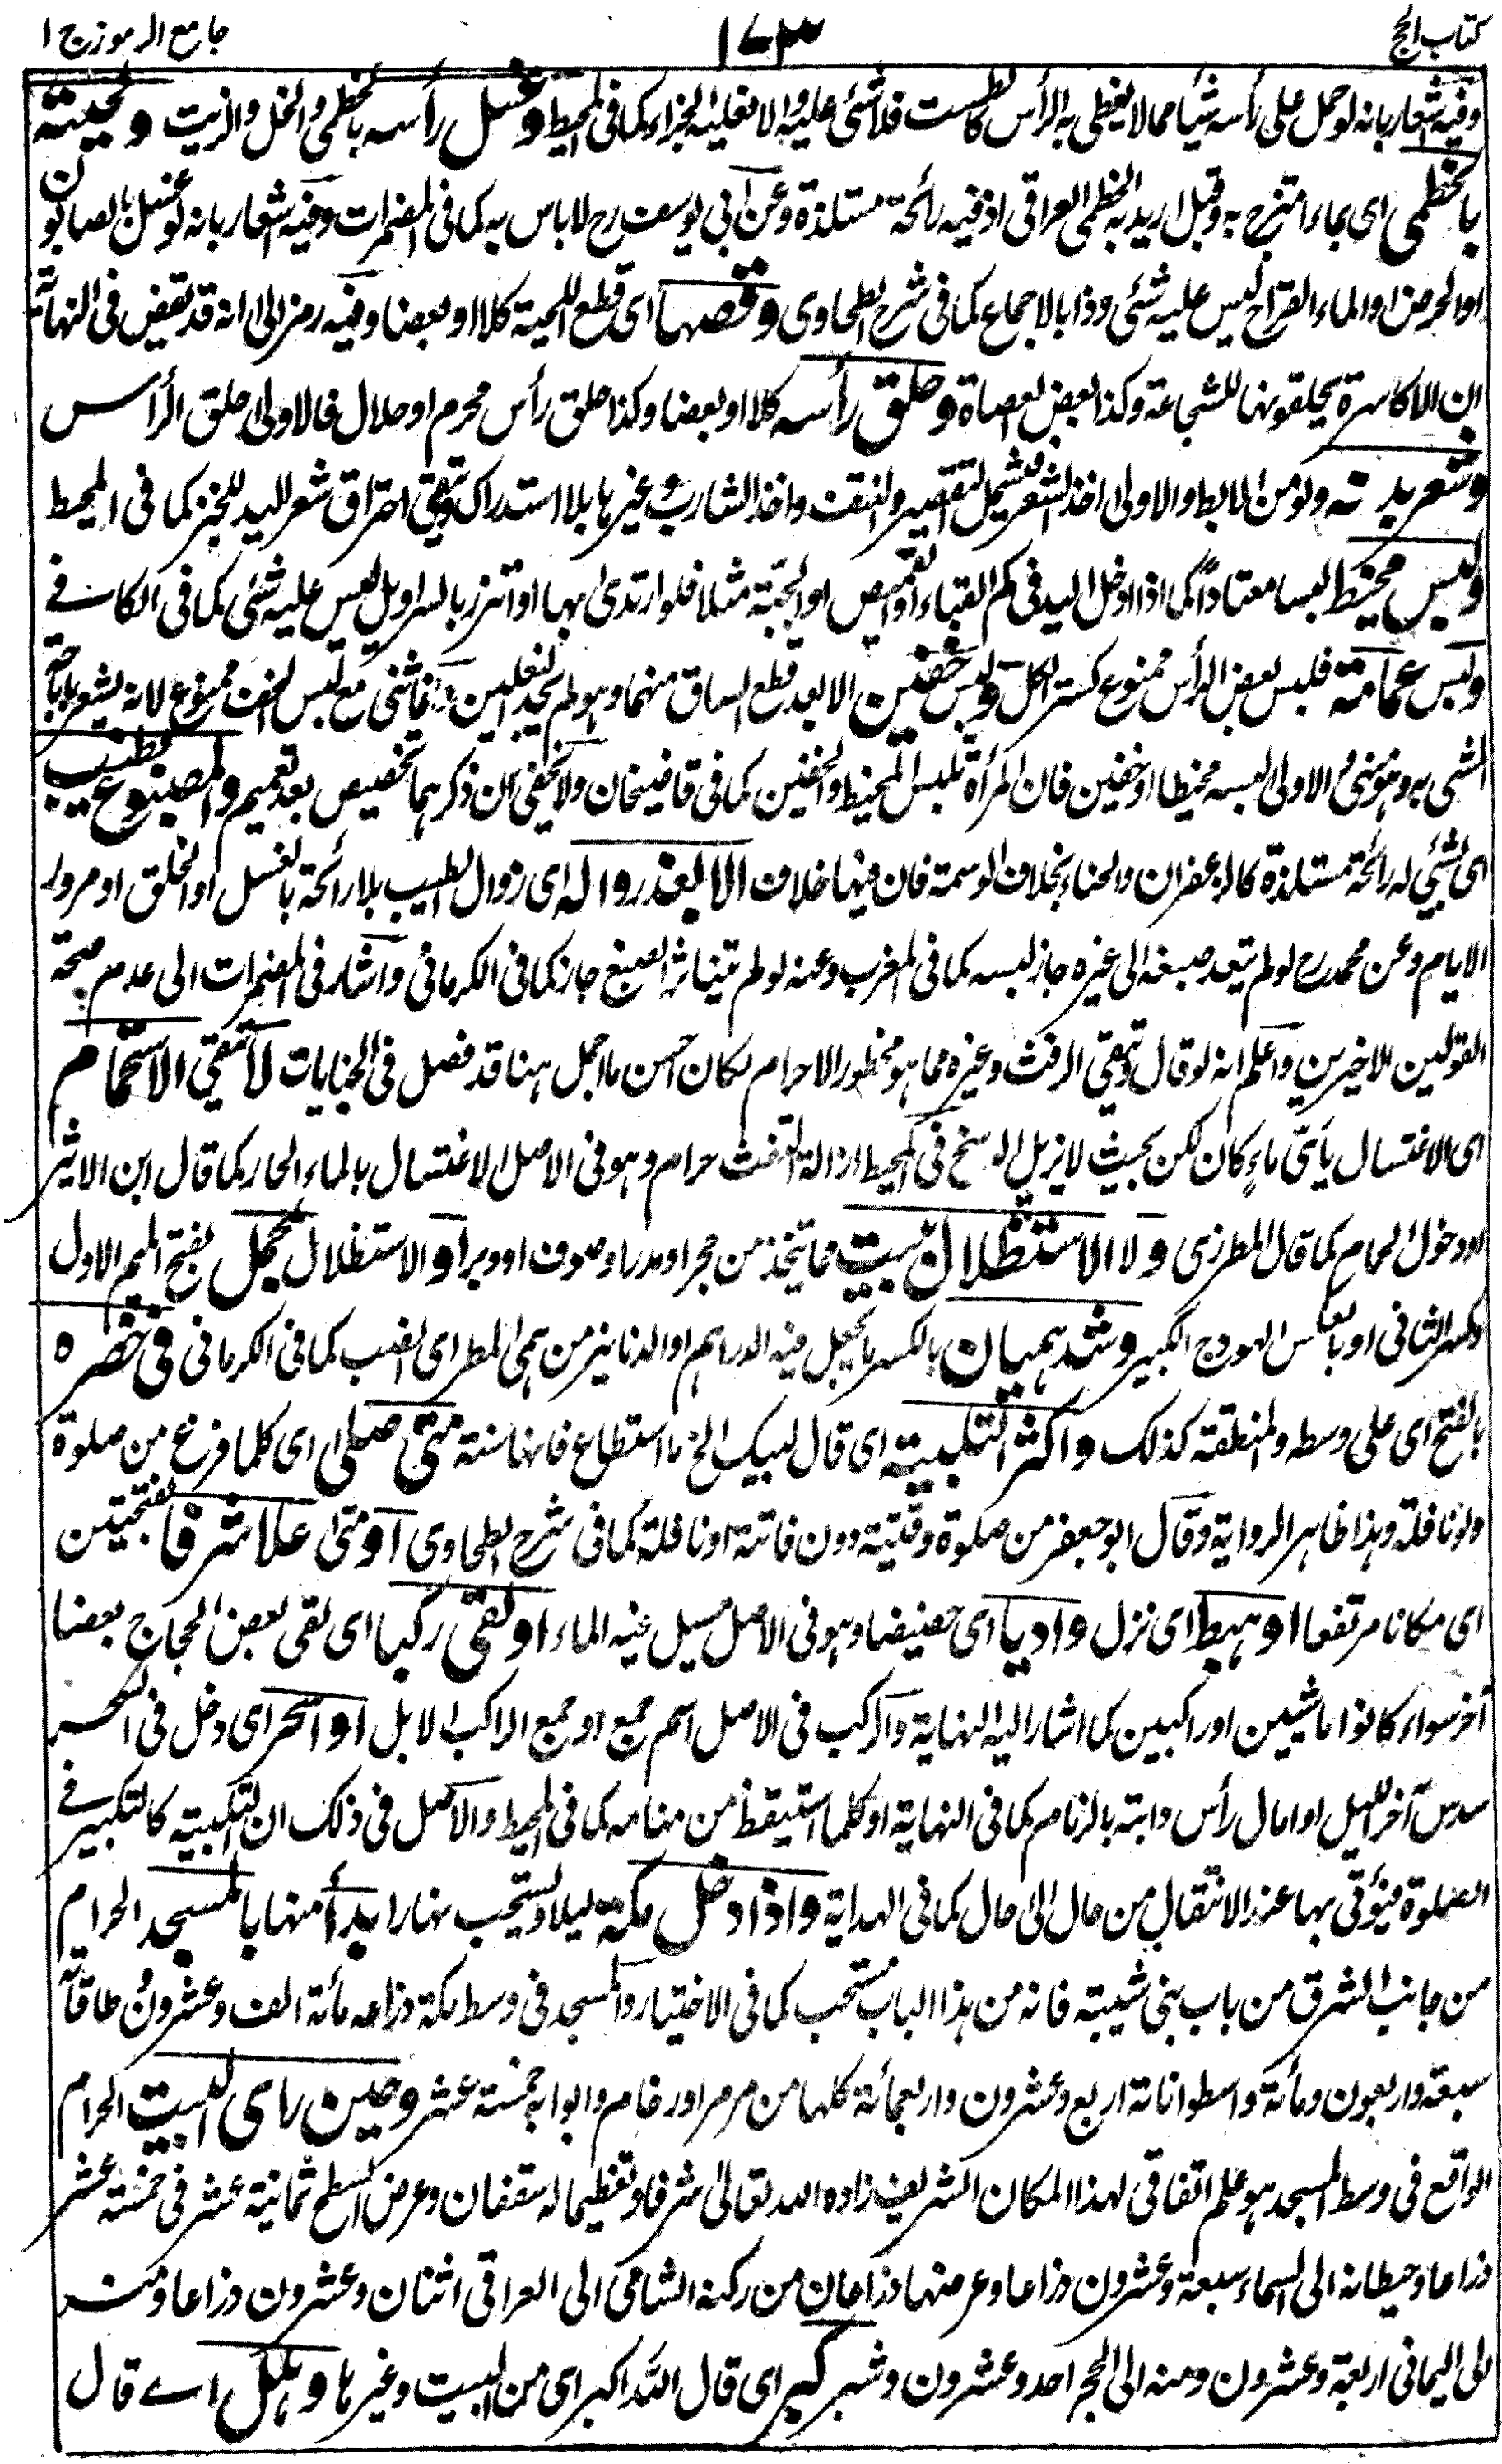 كتاب الحج ١٧٣ جامع الرموز ج ١
وفيه اشعار بانه لو حمل على رأسه شيأ مما لا يغطى به الرأس كالطست فلا شئ عليه والا فعليه الجزاء كما فى المحيط وغسل رأسه بالخطمى والخل والزيت ولحيته
بالخطمى اى بماء امتزج به وقيل اريد به الخطمى العراقى اذ فيه رائحة مستلذة وعن ابى يوسف رح لا باس به كما فى المضمرات وفيه اشعار بانه لو غسل بالصابون
او الحرض او الماء القراح ليس عليه شئى وذا بالاجماع كما فى شرح الطحاوى وقصها اى قطع اللحية كلا او بعضا وفيه رمز الى انه قد نقض فى النهاية
ان الاكاسرة يحلقونها للشجاعة وكذا بعض العصاة وحلق رأسه كلا او بعضا وكذا حلق رأس محرم او حلال فالاولى حلق الرأس
وشعر بدنه ولو من الابط والاولى اخذ الشعر فيشمل التقصير والنتف واخذ الشارب وغيرها بلا استدراك ويتقى احتراق شعر اليد للخبز كما فى المحيط
ولبس مخيط لبسا معتادا كما اذا ادخل اليد فى كم القباء او القميص او الجبة مثلا فلو ارتدى بها او اتزر بالسراويل ليس عليه شئى كما فى الكافے
ولبس عمامة فلبس بعض الرأس ممنوع كستر الكل ولبس خفين الا بعد قطع الساق منهما وهو لم يجد النعلين فالمشى مع لبس الخف ممنوع لانه يشعر باباحة
المشى به وهو منهى والاولى لبسه مخيطا او خفين فان المرأة تلبس المخيط والخفين كما فى قاضيخان ولا يخفى ان ذكرهما تخصيص بعد تعميم والمصبوغ بطيب
اى بشئ له رائحة مستلذة كالزعفران والحناء بخلاف الوسمة فان فيها خلاف الا بعد زواله اى زوال الطيب بلا رائحة بالغسل او الخلق او مرور
الايام وعن محمد رح لو لم يتعد صبغه الى غيره جاز لبسه كما فى المغرب وعنه لو لم يتناثر الصبغ جاز كما فى الكرمانى واشار فى المضمرات الى عدم صحة
القولين الاخيرين واعلم انه لو قال ويتقى الرفث وغيره مما هو محظور الاحرام لكان احسن ما اجمل هنا قد فصل فى الجنايات لا يتقى الاستحمام
اى الاغتسال باىّ ماءٍ كان لكن بحيث لا يزيل الوسخ فى المحيط ازالة التفث حرام وهو فى الاصل الاغتسال بالماء الحار كما قال ابن الاثير
او دخول الحمام كما قال المطرزى ولا الاستظلال ببيت مما يتخذ من حجر او مدر او صوف او وبر او الاستظلال بمحمل بفتح الميم الاول
وكسر الثانى او بالعكس الهودج الكبير وشد هميان بالكسر ما يجعل فيه الدراهم او الدنانير من همى المطر اى انصب كما فى الكرمانى فى خصره
بالفتح اى على وسطه والمنطقة كذلك واكثر التلبية اى قال لبيك الخ ما استطاع فانها سنة متى صلى اى كلما فرغ من صلوة
ولو نافلة وهذا ظاهر الرواية وقال ابو جعفر من صلوة وقتية دون فائتة او نافلة كما فى شرح الطحاوى او متى علا شرفا بفتحيتن
اى مكانا مرتفعا او هبط اى نزل واديا اى حضيضا وهو فى الاصل مسيل فيه الماء او لقى ركبا اى لقى بعض الحجاج بعضا
آخر سواء كانوا ماشيين او راكبين كما اشار اليه النهاية والركب فى الاصل اسم جمع او جمع الراكب الابل او اسحر اى دخل فى السحر
سدس آخر الليل او امال رأس دابته بالزمام كما فى النهاية او كلما استيقظ من منامه كما فى المحيط والاصل فى ذلك ان التلبية كالتكبير فے
الصلوة فيؤتى بها عند الانتقال من حال الى حال كما فى الهداية واذا دخل مكة ليلا ويستحب نهارا بدأ منها بالمسجد الحرام
من جانب الشرق من باب بنى شيبة فانه من هذا الباب مستحب كما فى الاختيار والمسجد فى وسط مكة ذراعه مائة الف وعشرون طاقاته
سبعة واربعون ومائة واسطواناته اربع وعشرون واربعمائة كلها من مرمر او رخام وابوابه خمسة عشر وحين راى البيت الحرام
الواقع فى وسط المسجد هو علم اتفاقى لهذا المكان الشريف زاده الله تعالى شرفا وتعظيما له سقفان وعرض السطح ثمانية عشر فى خمسة عشر
ذراعا وحيطانه الى السماء سبعة وعشرون ذراعا وعرضها ذراعان من ركنه الشامى الى العراقى اثنان وعشرون ذراعا ومنه
الى اليمانى اربعة وعشرون ومنه الى الحجر احد وعشرون وشبر كبر اى قال الله اكبر اى من البيت وغيرها وهلل اے قال